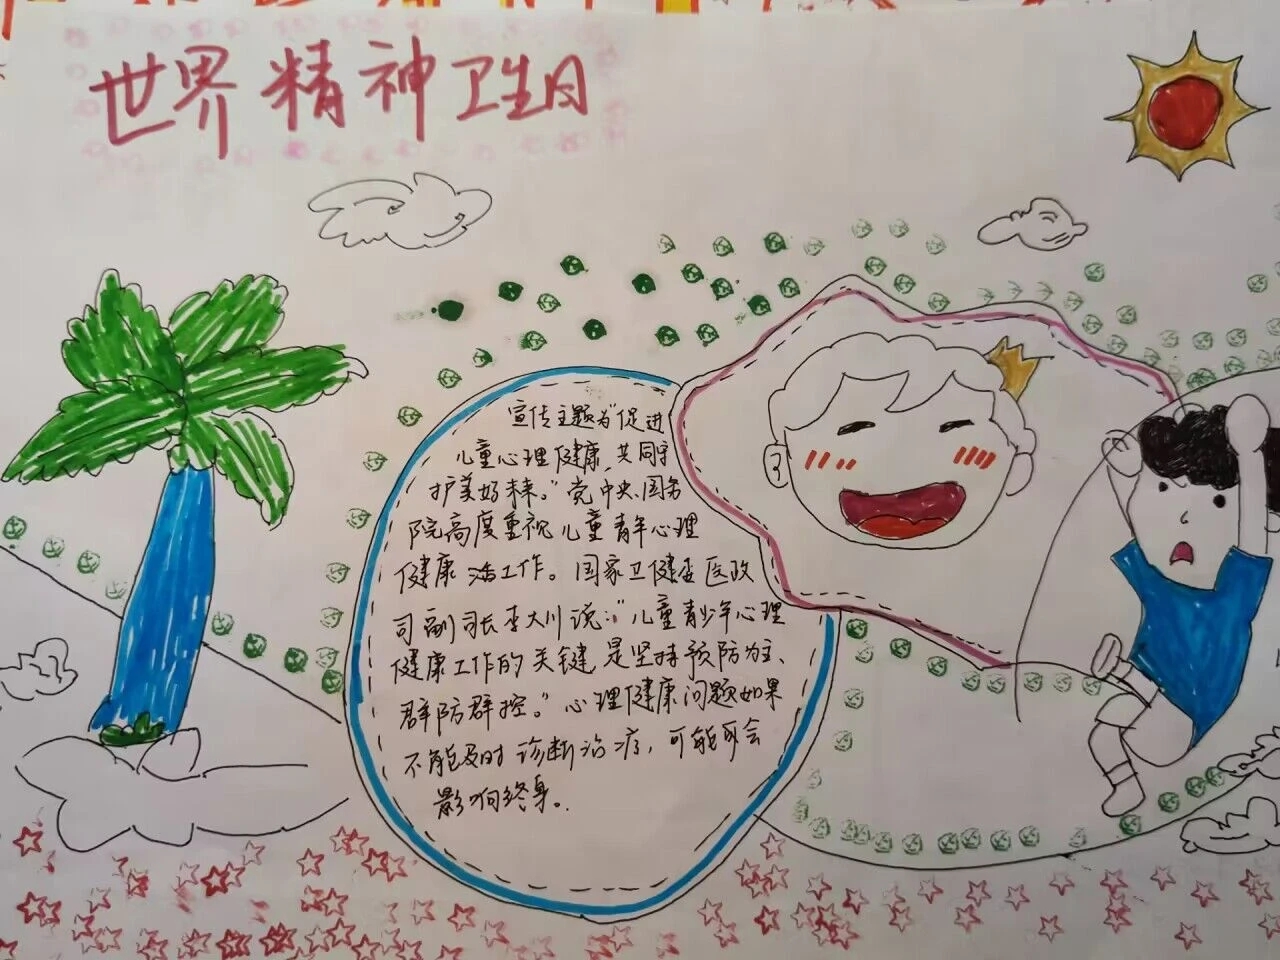 世界精神卫生日
宣传主题为“促进
儿童心理健康,共同守
护美好未来。”党中央、国务
院高度重视儿童青年心理
健康活工作。国家卫健委医政
司副司长李大川说:“儿童青少年心理
健康工作的关键是坚持预防为主、
群防群控。”心理健康问题如果
不能及时诊断治疗,可能会
影响终身。